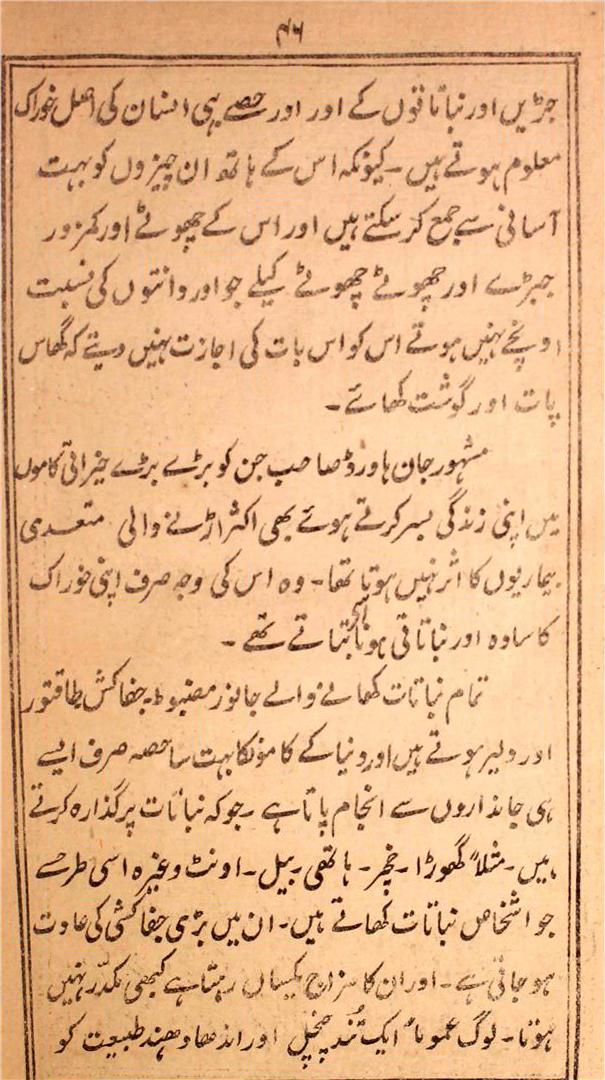 ۴۶
جڑیں اور نباتاتوں کے اور اور حصے ہی انسان کی اصل خوراک
معلوم ہوتے ہیں۔ کیونکہ اس کے ہاتھ ان چیزوں کو بہت
آسانی سے جمع کر سکتے ہیں اور اس کے چھوٹے اور کمزور
جبڑے اور چھوٹے چھوٹے کیلے جو اور دانتوں کی نسبت
اونچے نہیں ہوتے اس کو اس بات کی اجازت نہیں دیتے کہ گھاس
پات اور گوشت کھائے۔
مشہور جان ہاورڈ صاحب جن کو بڑے بڑے خیراتی کاموں
میں اپنی زندگی بسر کرتے ہوئے بھی اکثر اڑنے والی متعدی
بیماریوں کا اثر نہیں ہوتا تھا۔ وہ اس کی وجہ صرف اپنی خوراک
کا سادہ اور نباتاتی ہونا ہی بتاتے تھے۔
تمام نباتات کھانے والے جانور مضبوط۔ جفاکش طاقتور
اور دلیر ہوتے ہیں اور دنیا کے کاموں کا بہت سا حصہ صرف ایسے
ہی جانداروں سے انجام پاتا ہے۔ جو کہ نباتات پر گذارہ کرتے
ہیں۔ مثلاً گھوڑا۔ خچر۔ ہاتھی۔ بیل۔ اونٹ وغیرہ اسی طرح سے
جو اشخاص نباتات کھاتے ہیں۔ ان میں بڑی جفاکشی کی عادت
ہو جاتی ہے۔ اور ان کا مزاج یکساں رہتا ہے کبھی مکدّر نہیں
ہوتا۔ لوگ عموماً ایک تُند چنچل اور اندھا دھند طبیعت کو